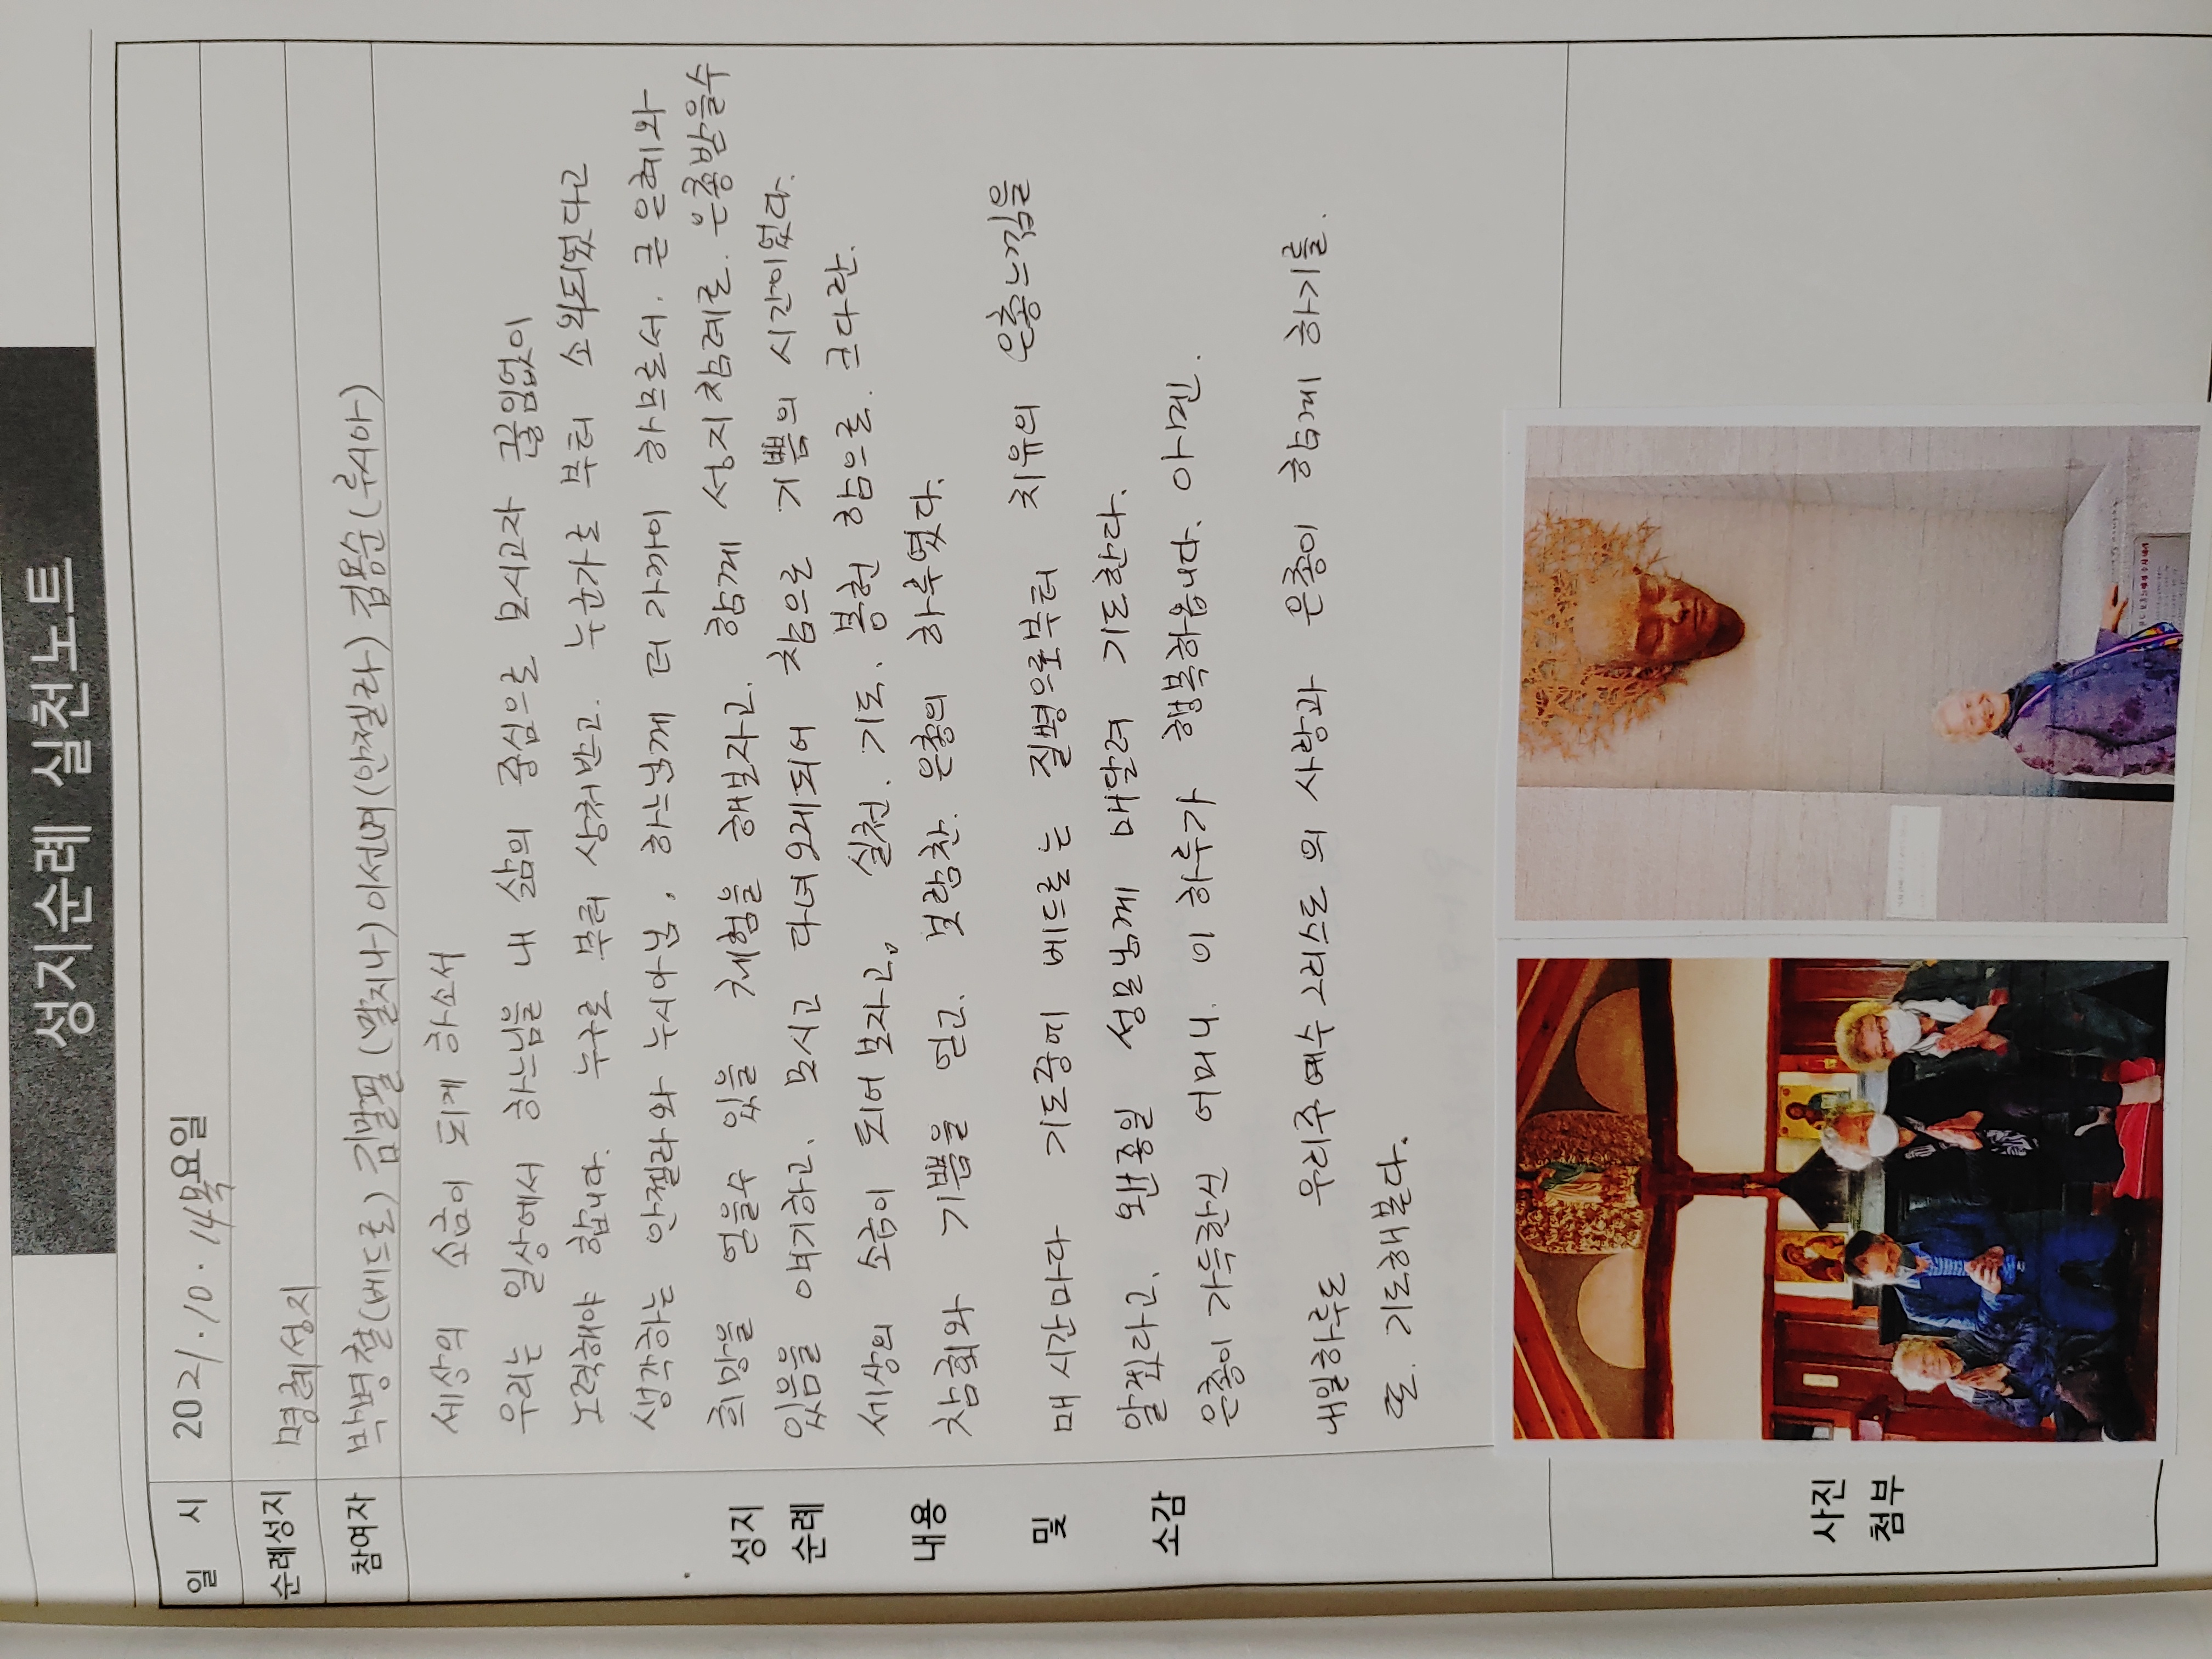 성지순례 실천노트
일 시 2021.10.14목요일
순례성지 명례성지
참여자 박병찰(베드로) 김말필(발지나) 이선녀(안젤라) 김용순(루시아)
성지
순례
내용
및
소감
세상의 소금이 되게 하소서
우리는 일상에서 하느님을 내 삶의 중심으로 모시고자 끊임없이
노력해야 합니다. 누구로 부터 상처받고. 누군가로 부터 소외되었다고
생각하는 안젤라와 누시아님, 하느님께 더 가까이 하므로서. 큰 은혜와
희망을 얻을수 있을 체험을 해보자고. 함께 성지참례로. 은총받을수
있음을 얘기하고. 모시고 다녀오게되어 참으로 기쁨의 시간이었다.
세상의 소금이 되어보자고. 실천. 기도. 봉헌 함으로. 크다란.
참회와 기쁨을 얻고. 보람찬. 은총의 하루였다.
매 시간마다 기도중에 베드로는 질병으로부터 치유의 은총느낌을
알겠다고. 왼종일 성모님께 매달려 기도한다.
은총이 가득한신 어머니. 이 하루가 행복하옵니다. 아멘.
내일하루도 우리주예수그리스도의 사랑과 은총이 함께 하기를.
또. 기도해본다.
사진
첨부